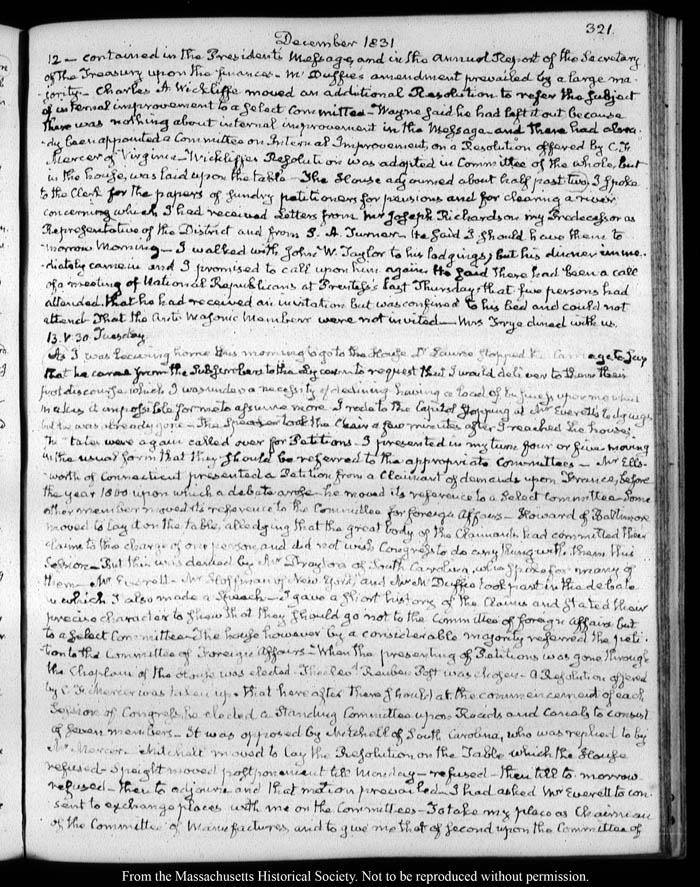 321.
December 1831
12 - contained in the President's Message, and in the Annual Report of the Secretary
of the Treasury upon the finances - Mr Duffie's amendment prevailed by a large ma-
-jority - Charles A Wickliffe moved an additional Resolution to refer the subject
of internal improvement to a select Committee - Wayne said he had left it out because
there was nothing about internal improvement in the Message - and there had alrea-
-dy been appointed a Committee on Internal Improvement, on a Resolution offered by C. F.
Mercer of Virginia - Wickliffe's Resolution was adopted in Committee of the whole, but
in the house, was laid upon the table - The House adjourned about half past two, I spoke
to the Clerk for the papers of sundry petitioners for pensions and for clearing a river
concerning which I had received Letters from Mr Joseph Richardson my Predecessor as
Representative of the District and from S. A. Turner - He said I should have them to
morrow Morning - I walked with John W. Taylor to his lodgings; but his dinner imme-
diately came in and I promised to call upon him again. He said there had been a call
of a meeting of National Republicans at Prentiss's last Thursday, that five persons had
attended. That he had received an invitation but was confined to his bed and could not
attend - That the Anti Masonic Members were not invited - Mrs Frye dined with us.
13. V. 30. Tuesday
As I was leaving home this morning to go to the House Dr Laurie stopped the Carriage to say
that he came from the Subscribers to the Lyceum to request that I would deliver to them their
first discourse which I was under a necessity of declining having a load of business upon me which
makes it impossible for me to assume more. I rode to the Capitol stopping at Mr Everett's lodgings
but he was already gone - The Speaker took the Chair a few minutes after I reached the house
The States were again called over for Petitions - I presented in my turn four or five moving
in the usual form that they should be referred to the appropriate Committees - Mr Ells-
worth of Connecticut presented a Petition from a Claimant of demands upon France, before
the year 1800 upon which a debate arose - he moved its reference to a Select Committee - Some
other member moved its reference to the Committee for foreign Affairs - Howard of Baltimore
moved to lay it on the table, alledging that the great body of the Claimants had committed their
claims to the charge of one person, and did not wish Congress to do any thing with them this
Session - But this was denied by Mr Drayton of South Carolina, who spoke for many of
them - Mr Everett - Mr Hoffman of New York, and Mr McDuffie took part in the debate
in which I also made a Speech - I gave a short history of the Claims and stated their
precise character to shew that they should go not to the Committee of foreign Affairs but
to a Select Committee - The house however by a considerable majority referred the peti-
-tion to the Committee of Foreign Affairs - When the presenting of Petitions was gone through
the Chaplain of the House was elected. The Revd Reuben Post was chosen - A Resolution offered
by C. F. Mercer was taken up. That hereafter there should at the commencement of each
Session of Congress be elected a Standing Committee upon Roads and Canals to consist
of seven members - It was opposed by Mitchell of South Carolina, who was replied to by
Mr Mercer - Mitchell moved to lay the Resolution on the Table which the House
refused - Speight moved postponement till Monday - refused - then till to-morrow
refused - then to adjourn and that motion prevailed - I had asked Mr Everett to con-
sent to exchange places with me on the Committees - To take my place as Chairman
of the Committee of Manufactures, and to give me that of second upon the Committee of
From the Massachusetts Historical Society. Not to be reproduced without permission.